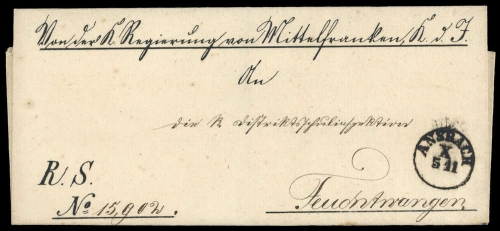 Von der K. Regierung von Mittelfranken, K. d. I.
An
die K. Distriktsschulinspektion
ANSBACH
X
5 11
R. S.
Feuchtwangen
No 15,902.